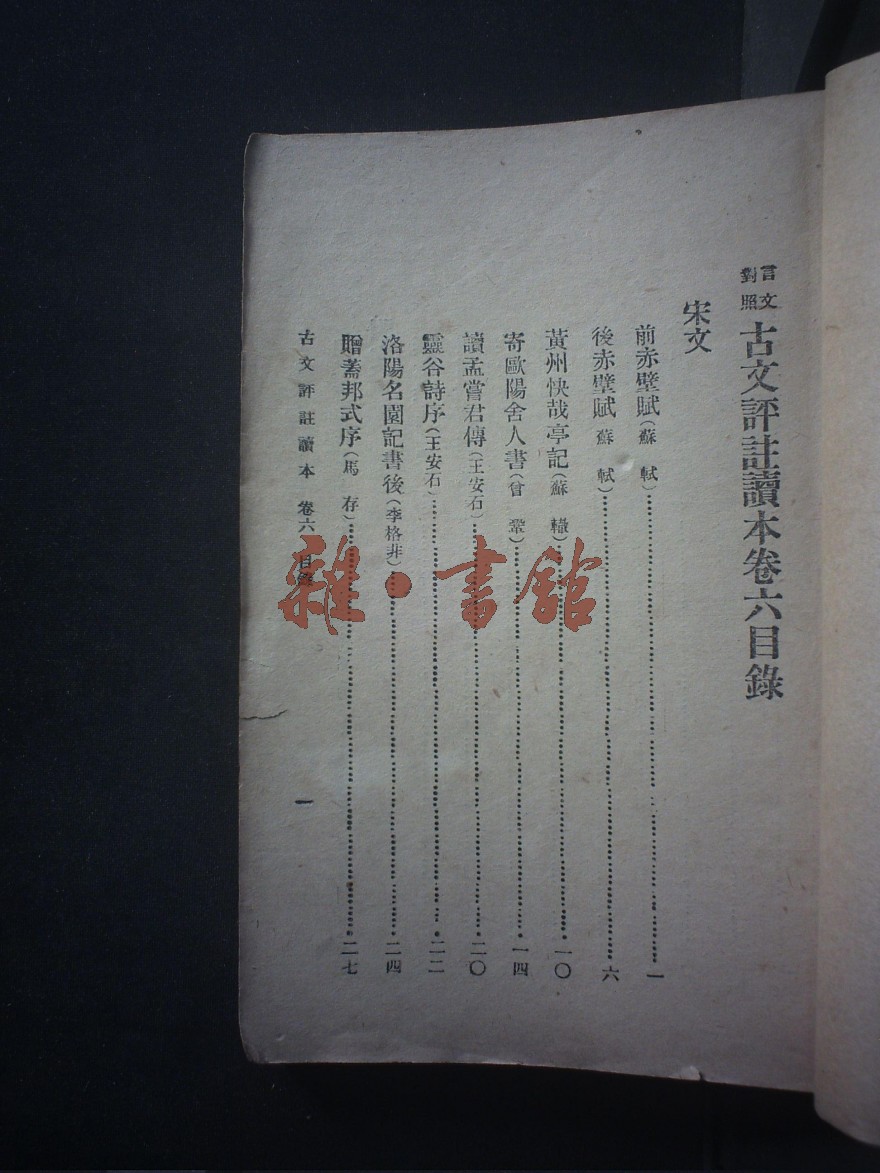 言文對照 古文評註讀本卷六目錄
宋文
前赤壁賦(蘇 軾)……一
後赤壁賦(蘇 軾)……六
黃州快哉亭記(蘇 轍)……一〇
寄歐陽舍人書(曾 鞏)……一四
讀孟嘗君傳(王安石)……二〇
靈谷詩序(王安石)……二二
洛陽名園記書後(李格非)……二四
贈蓋邦式序(馬 存)……二七
古文評註讀本 卷六 目錄 一
雜·書館